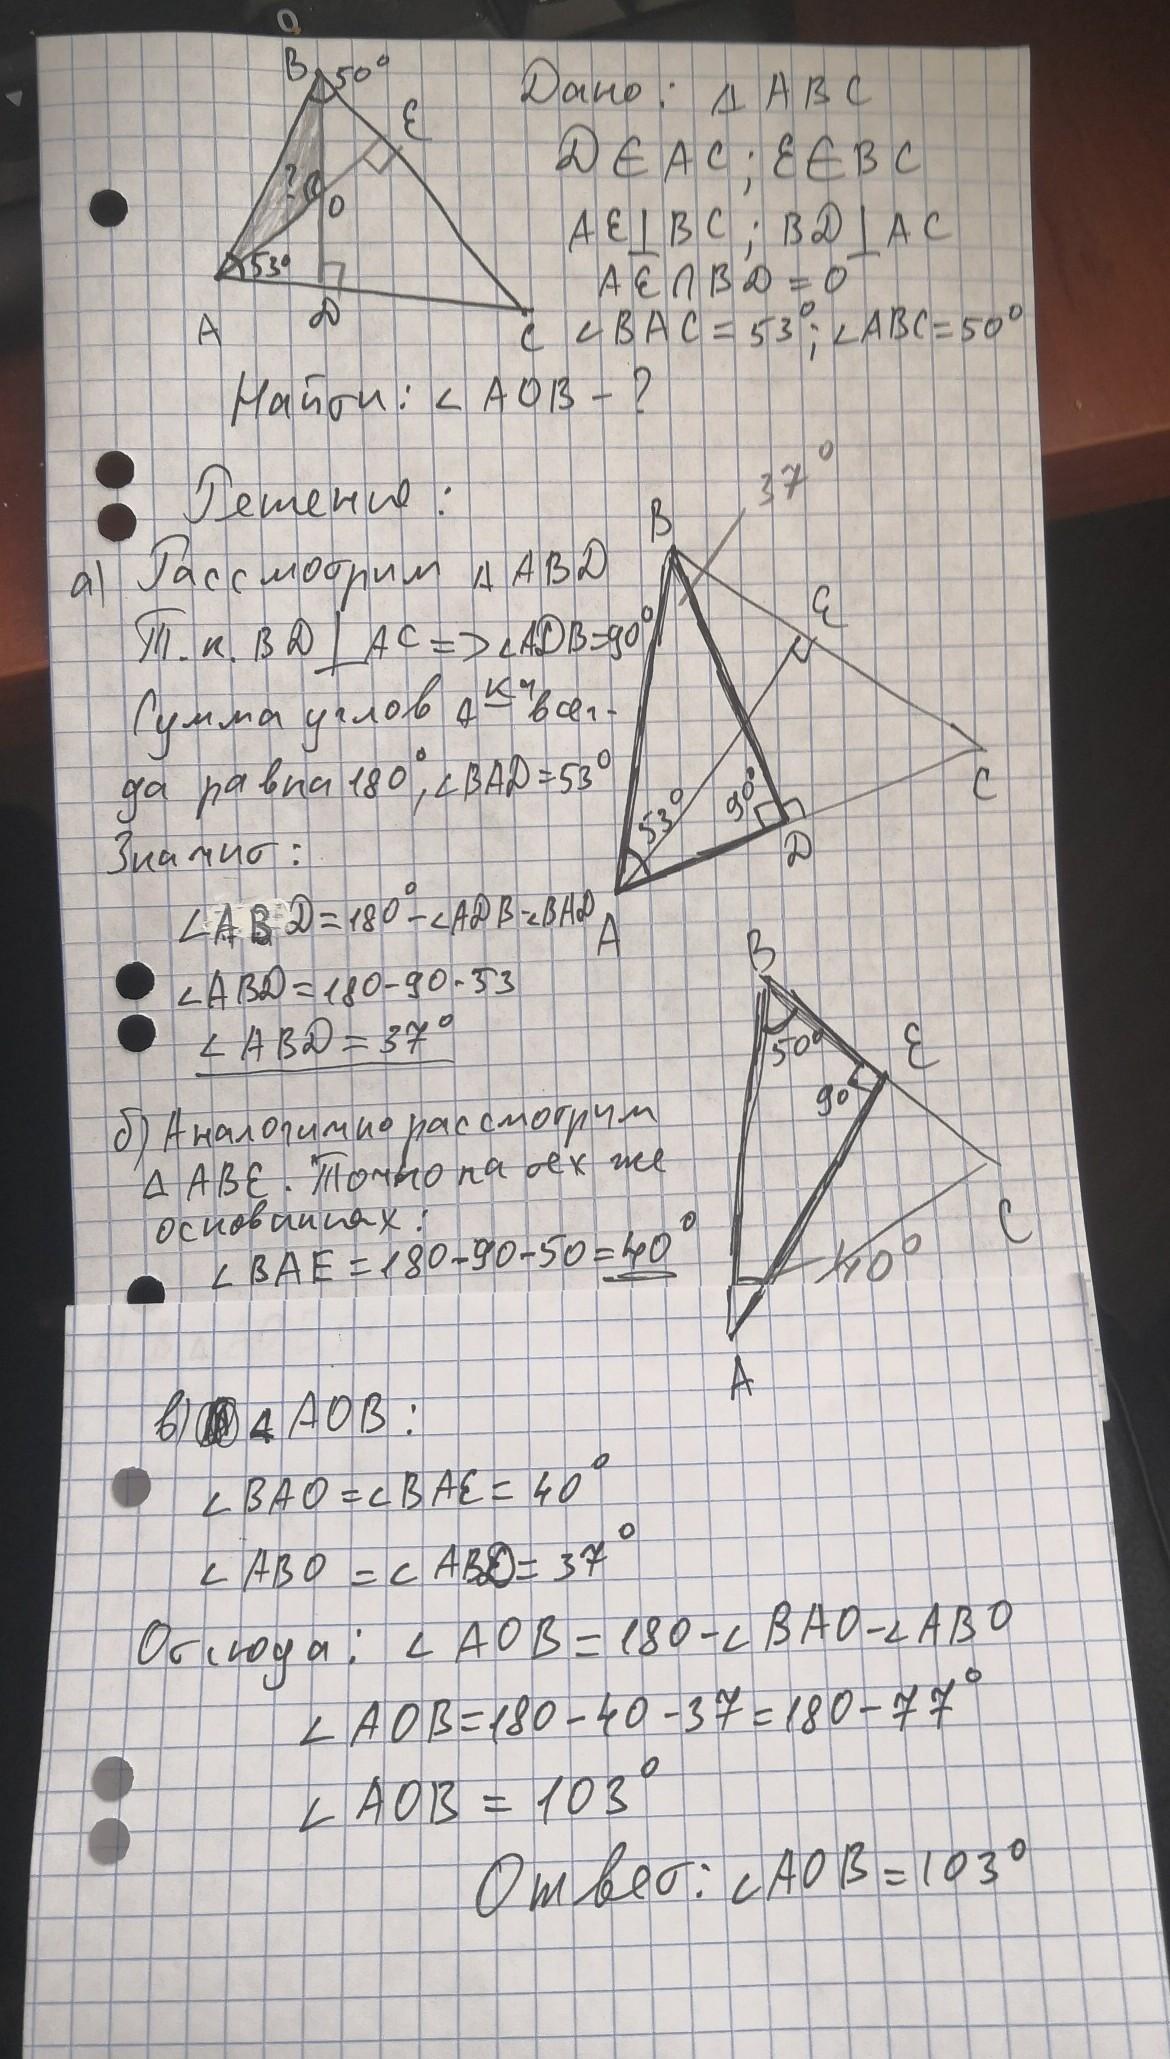 B 50°
E
?
O
53°
A
D
C
Дано: Δ ABC
D ∈ AC; E ∈ BC
AE ⊥ BC; BD ⊥ AC
AE ∩ BD = O
∠BAC = 53°; ∠ABC = 50°
Найти: ∠AOB - ?
Решение:
а) Рассмотрим Δ ABD
Т.к. BD ⊥ AC => ∠ADB=90°
Сумма углов Δ-ка всег-
да равна 180°, ∠BAD=53°
Значит:
∠ABD=180°-∠ADB-∠BAD
∠ABD=180-90-53
∠ABD=37°
37°
B
E
C
53°
90°
D
A
б) Аналогично рассмотрим
Δ ABE. Точно на тех же
основаниях:
∠BAE=180-90-50=40°
B
50°
E
90
C
40°
A
в) Δ AOB:
∠BAO=∠BAE=40°
∠ABO=∠ABD=37°
Отсюда: ∠AOB=180-∠BAO-∠ABO
∠AOB=180-40-37=180-77°
∠AOB=103°
Ответ: ∠AOB=103°